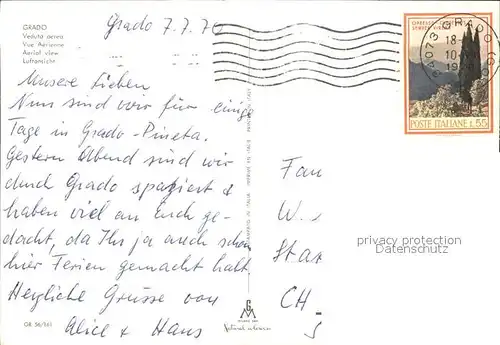 GRADO
Veduta aerea
Vue Aérienne
Aerial view
Luftansicht
Grado 7.7.70
Unsere Lieben
Nun sind wir für einige
Tage in Grado-Pineta.
Gestern Abend sind wir
durch Grado spaziert &
haben viel an Euch ge-
dacht, da Ihr ja auch schon
hier Ferien gemacht habt.
Herzliche Grüsse von
Alice + Hans
GR 56/161
CIPRESSO
POSTE ITALIANE L.55
GRADO
18-
10-
19
Fam
W.
Stat
CH-
S
privacy protection
Datenschutz
GM